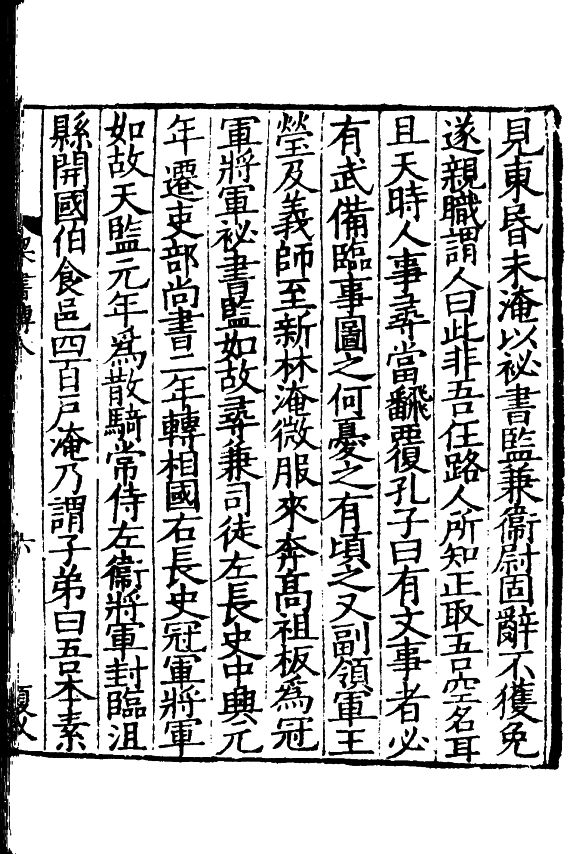 見東昏末淹以祕書監兼衞尉固辭不獲免
遂親職謂人曰此非吾任路人所知正取吾空名耳
且天時人事尋當飜覆孔子曰有文事者必
有武備臨事圖之何憂之有頃之又副領軍王
瑩及義師至新林淹微服來奔髙祖板爲冠
軍將軍祕書監如故尋兼司徒左長史中興元
年遷吏部尚書二年轉相國右長史冠軍將軍
如故天監元年爲散騎常侍左衞將軍封臨沮
縣開國伯食邑四百戸淹乃謂子弟曰吾本素
六